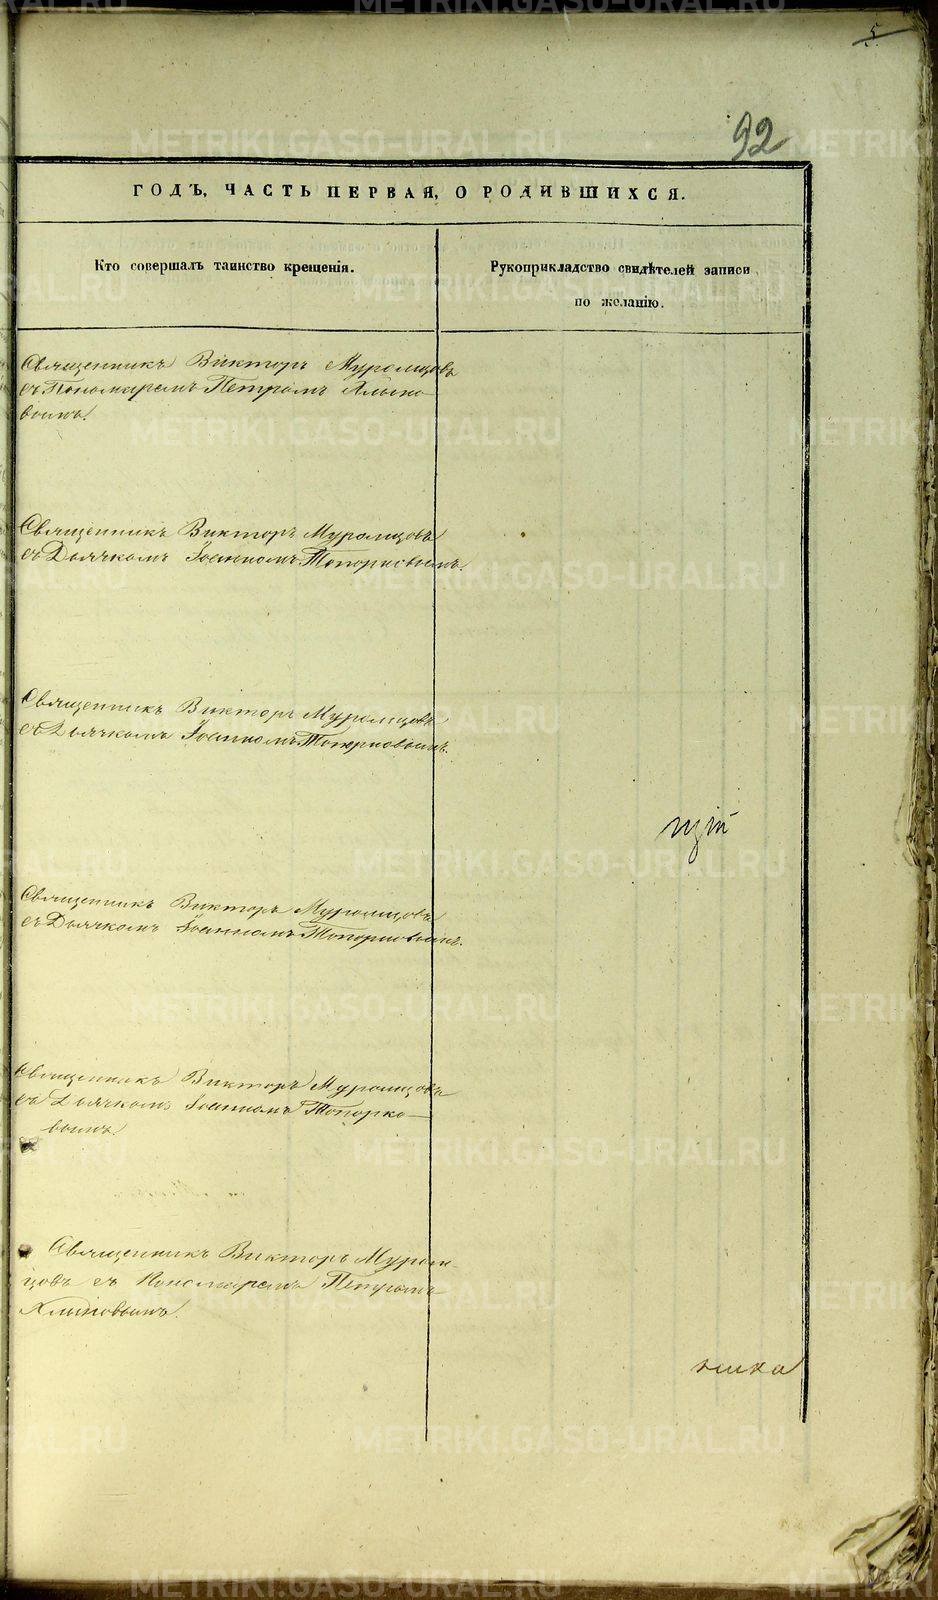 5
92
ГОДЪ, ЧАСТЬ ПЕРВАЯ, О РОДИВШИХСЯ.
Кто совершалъ таинство крещенія.
Рукоприкладство свидѣтелей записи
по желанію.
Священникъ Викторъ Муромцовъ
съ Пономаремъ Петромъ Хлыно-
вымъ.
Священникъ Викторъ Муромцовъ
съ Дьячкомъ Іоанномъ Топорковымъ.
Священникъ Викторъ Муромцовъ
съ Дьячкомъ Іоанномъ Топорковымъ.
Священникъ Викторъ Муромцовъ
съ Дьячкомъ Іоанномъ Топорковымъ.
Священникъ Викторъ Муромцовъ
съ Дьячкомъ Іоанномъ Топорко-
вымъ.
Священникъ Викторъ Муром
цовъ съ Пономаремъ Петромъ
Хлыновымъ.
METRIKI.GASO-URAL.RU